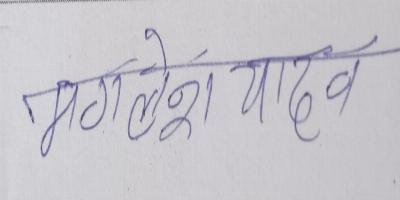 मगलेश यादव